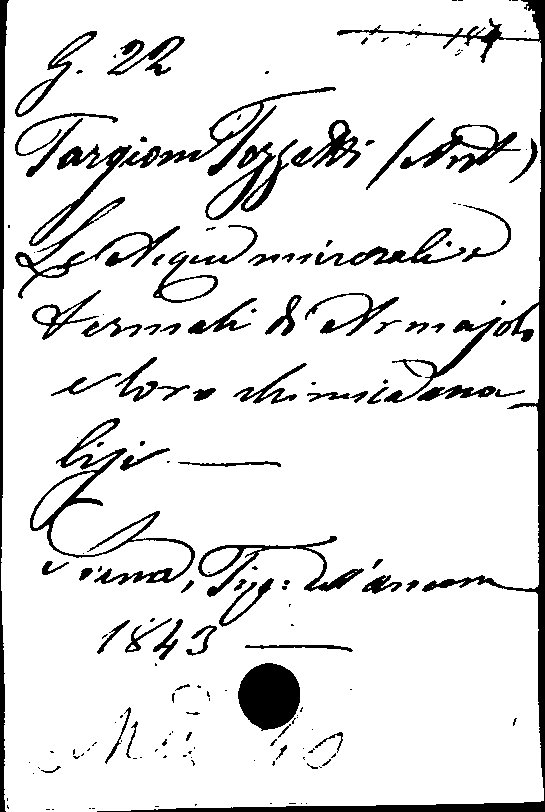 G. 22
Targioni Tozzetti (Ant)
Le Acque minerali e
termali di Armajolo
e loro chimica ana-
lisi —
Siena, Tip: dell'ancora
1843 —